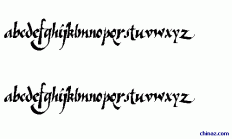 abcdefghijklmnopqrstuvwxyz
abcdefghijklmnopqrstuvwxyz
chinaz.com